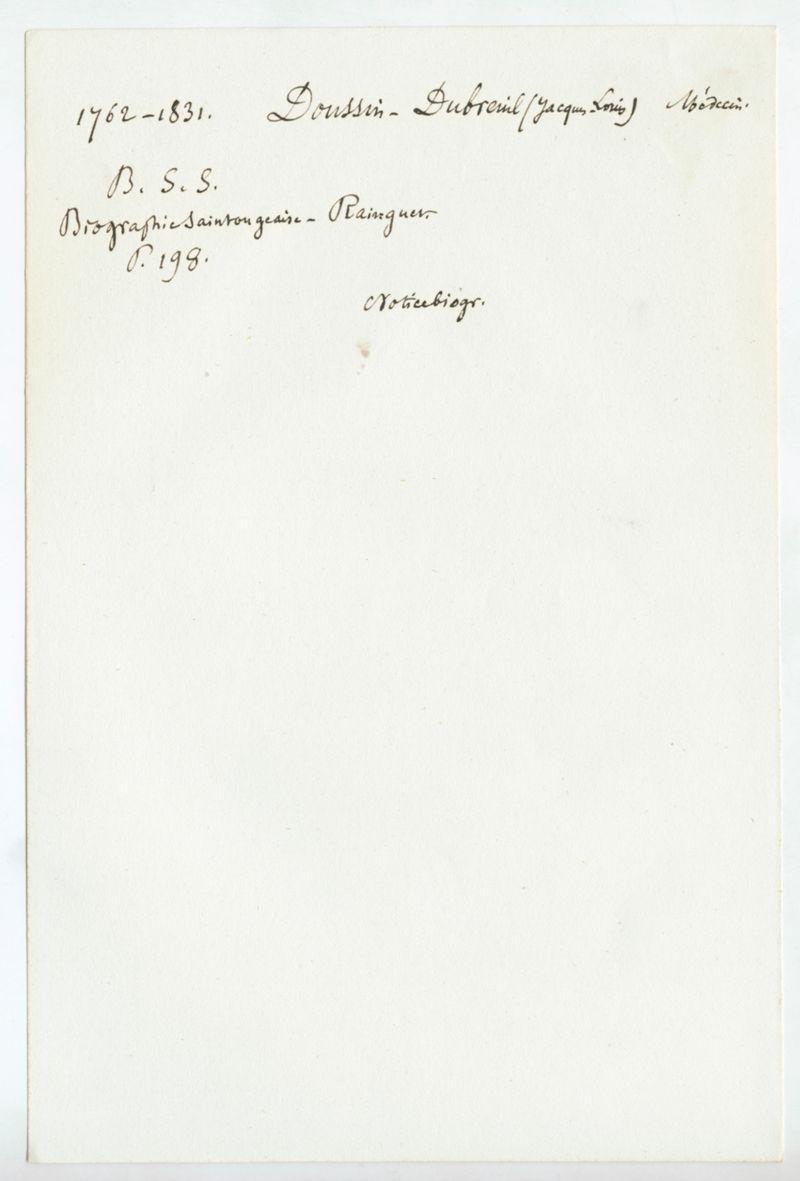 1762-1831. Doussin-Dubreuil (Jacques-Louis) Médecin.
B. S. S.
Biographie Saintongeaise - Rainguet.
P. 198.
Notice biogr.